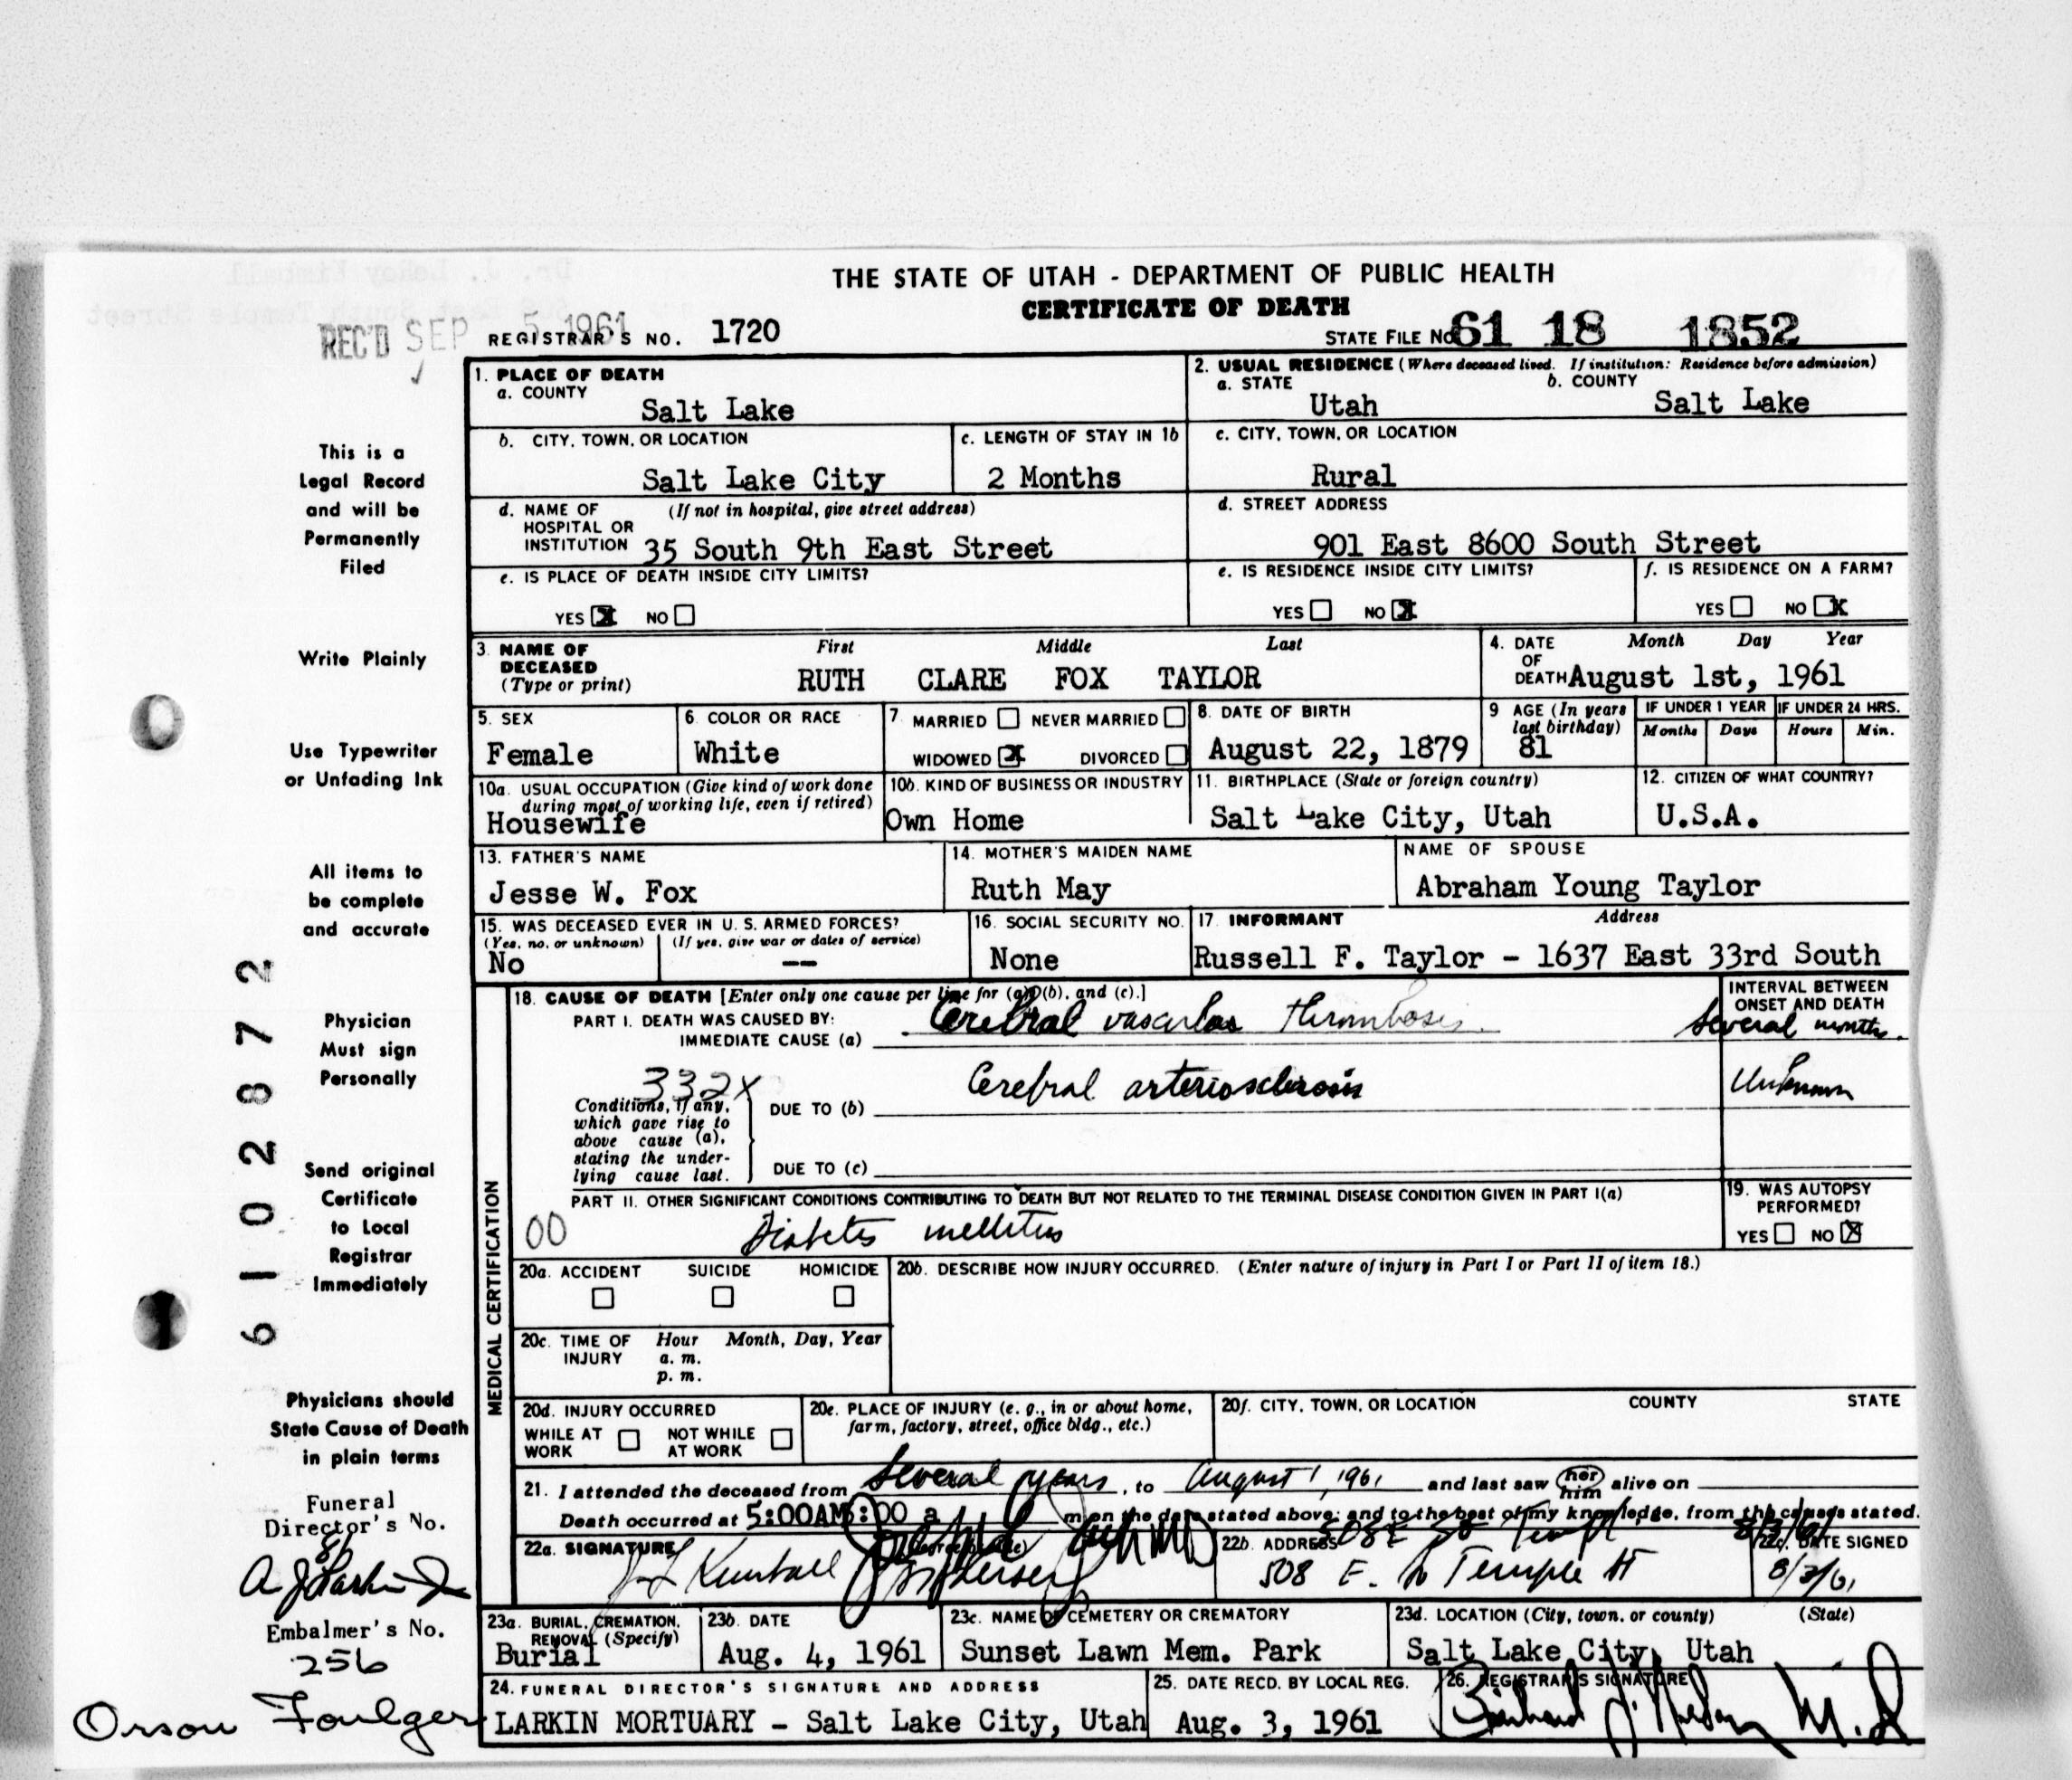 THE STATE OF UTAH - DEPARTMENT OF PUBLIC HEALTH
CERTIFICATE OF DEATH
REC'D SEP 5 1961
REGISTRAR'S NO. 1720
STATE FILE NO. 61 18 1852
This is a
Legal Record
and will be
Permanently
Filed
Write Plainly
Use Typewriter
or Unfading Ink
All items to
be complete
and accurate
Physician
Must sign
Personally
Send original
Certificate
to Local
Registrar
Immediately
Physicians should
State Cause of Death
in plain terms
Funeral
Director's No.
86
A J Larkin Jr
Embalmer's No.
256
Orson Foulger
6102872
1. PLACE OF DEATH
a. COUNTY
Salt Lake
2. USUAL RESIDENCE (Where deceased lived. If institution: Residence before admission)
a. STATE b. COUNTY
Utah Salt Lake
b. CITY, TOWN, OR LOCATION
Salt Lake City
c. LENGTH OF STAY IN 1b
2 Months
c. CITY, TOWN, OR LOCATION
Rural
d. NAME OF (If not in hospital, give street address)
HOSPITAL OR
INSTITUTION 35 South 9th East Street
d. STREET ADDRESS
901 East 8600 South Street
e. IS PLACE OF DEATH INSIDE CITY LIMITS?
YES X NO
e. IS RESIDENCE INSIDE CITY LIMITS?
YES NO X
f. IS RESIDENCE ON A FARM?
YES NO X
3. NAME OF First Middle Last
DECEASED
(Type or print) RUTH CLARE FOX TAYLOR
4. DATE Month Day Year
OF
DEATH August 1st, 1961
5. SEX
Female
6. COLOR OR RACE
White
7. MARRIED NEVER MARRIED
WIDOWED X DIVORCED
8. DATE OF BIRTH
August 22, 1879
9 AGE (In years
last birthday)
81
IF UNDER 1 YEAR
Months Days
IF UNDER 24 HRS.
Hours Min.
10a. USUAL OCCUPATION (Give kind of work done
during most of working life, even if retired)
Housewife
10b. KIND OF BUSINESS OR INDUSTRY
Own Home
11. BIRTHPLACE (State or foreign country)
Salt Lake City, Utah
12. CITIZEN OF WHAT COUNTRY?
U.S.A.
13. FATHER'S NAME
Jesse W. Fox
14. MOTHER'S MAIDEN NAME
Ruth May
NAME OF SPOUSE
Abraham Young Taylor
15. WAS DECEASED EVER IN U. S. ARMED FORCES?
(Yes, no, or unknown) (If yes, give war or dates of service)
No --
16. SOCIAL SECURITY NO.
None
17. INFORMANT Address
Russell F. Taylor - 1637 East 33rd South
MEDICAL CERTIFICATION
18. CAUSE OF DEATH [Enter only one cause per line for (a), (b), and (c).]
INTERVAL BETWEEN
ONSET AND DEATH
PART I. DEATH WAS CAUSED BY:
IMMEDIATE CAUSE (a) Cerebral vascular thrombosis Several months
332X
Conditions, if any,
which gave rise to
above cause (a),
stating the under-
lying cause last.
DUE TO (b) Cerebral arteriosclerosis Unknown
DUE TO (c)
PART II. OTHER SIGNIFICANT CONDITIONS CONTRIBUTING TO DEATH BUT NOT RELATED TO THE TERMINAL DISEASE CONDITION GIVEN IN PART I(a)
00 Diabetes mellitus
19. WAS AUTOPSY
PERFORMED?
YES NO X
20a. ACCIDENT SUICIDE HOMICIDE
20b. DESCRIBE HOW INJURY OCCURRED. (Enter nature of injury in Part I or Part II of item 18.)
20c. TIME OF Hour Month, Day, Year
INJURY a. m.
p. m.
20d. INJURY OCCURRED
WHILE AT WORK NOT WHILE AT WORK
20e. PLACE OF INJURY (e. g., in or about home,
farm, factory, street, office bldg., etc.)
20f. CITY, TOWN, OR LOCATION COUNTY STATE
21. I attended the deceased from several years, to August 1, 1961 and last saw her him alive on
Death occurred at 5:00AM :00 a m on the date stated above; and to the best of my knowledge, from the causes stated.
22a. SIGNATURE
J L Kimball
22b. ADDRESS 508 E So Temple
508 E. So Temple St
22c. DATE SIGNED
8/3/61
23a. BURIAL, CREMATION,
REMOVAL (Specify)
Burial
23b. DATE
Aug. 4, 1961
23c. NAME OF CEMETERY OR CREMATORY
Sunset Lawn Mem. Park
23d. LOCATION (City, town, or county) (State)
Salt Lake City, Utah
24. FUNERAL DIRECTOR'S SIGNATURE AND ADDRESS
LARKIN MORTUARY - Salt Lake City, Utah
25. DATE RECD. BY LOCAL REG.
Aug. 3, 1961
26. REGISTRAR'S SIGNATURE
M.D